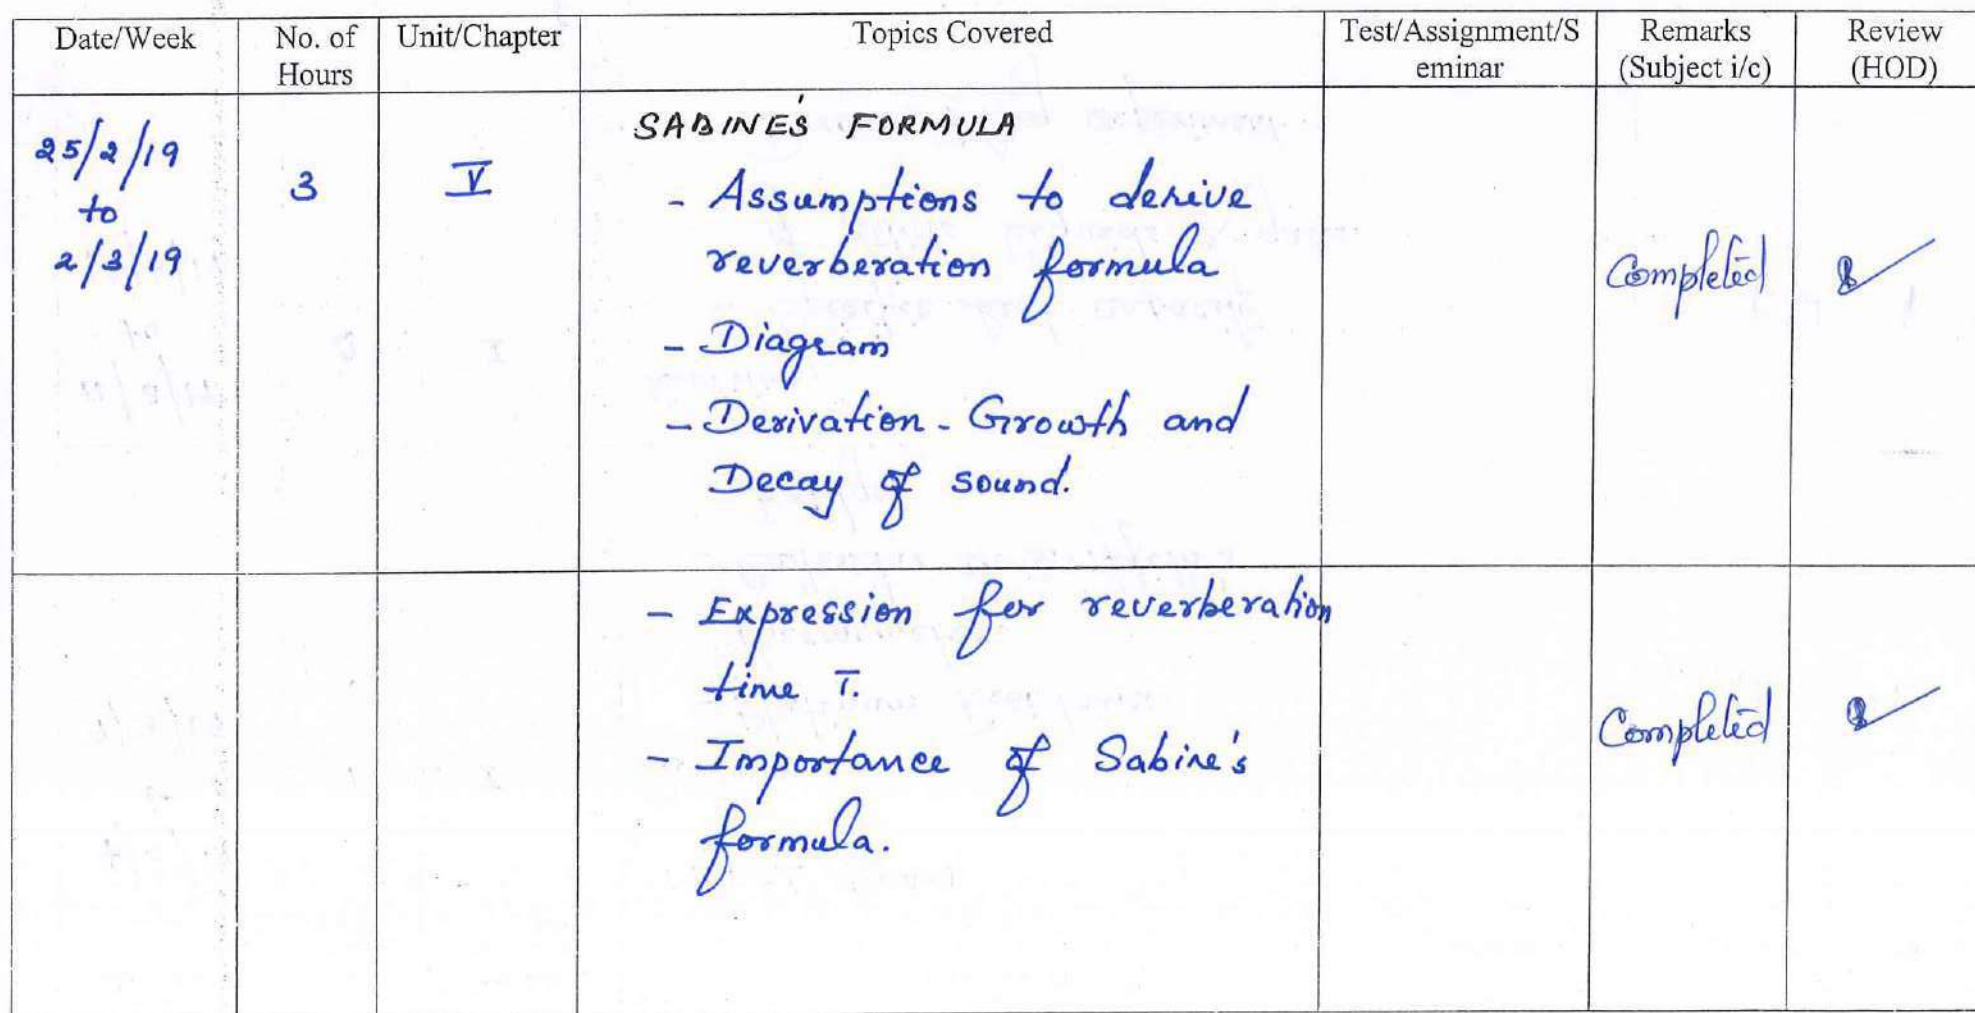 Date/Week No. of Hours Unit/Chapter Topics Covered Test/Assignment/S eminar Remarks (Subject i/c) Review (HOD)
25/2/19
to
2/3/19
3
V
SABINE'S FORMULA
- Assumptions to derive
reverberation formula
- Diagram
- Derivation - Growth and
Decay of sound.
Completed
- Expression for reverberation
time T.
- Importance of Sabine's
formula.
Completed